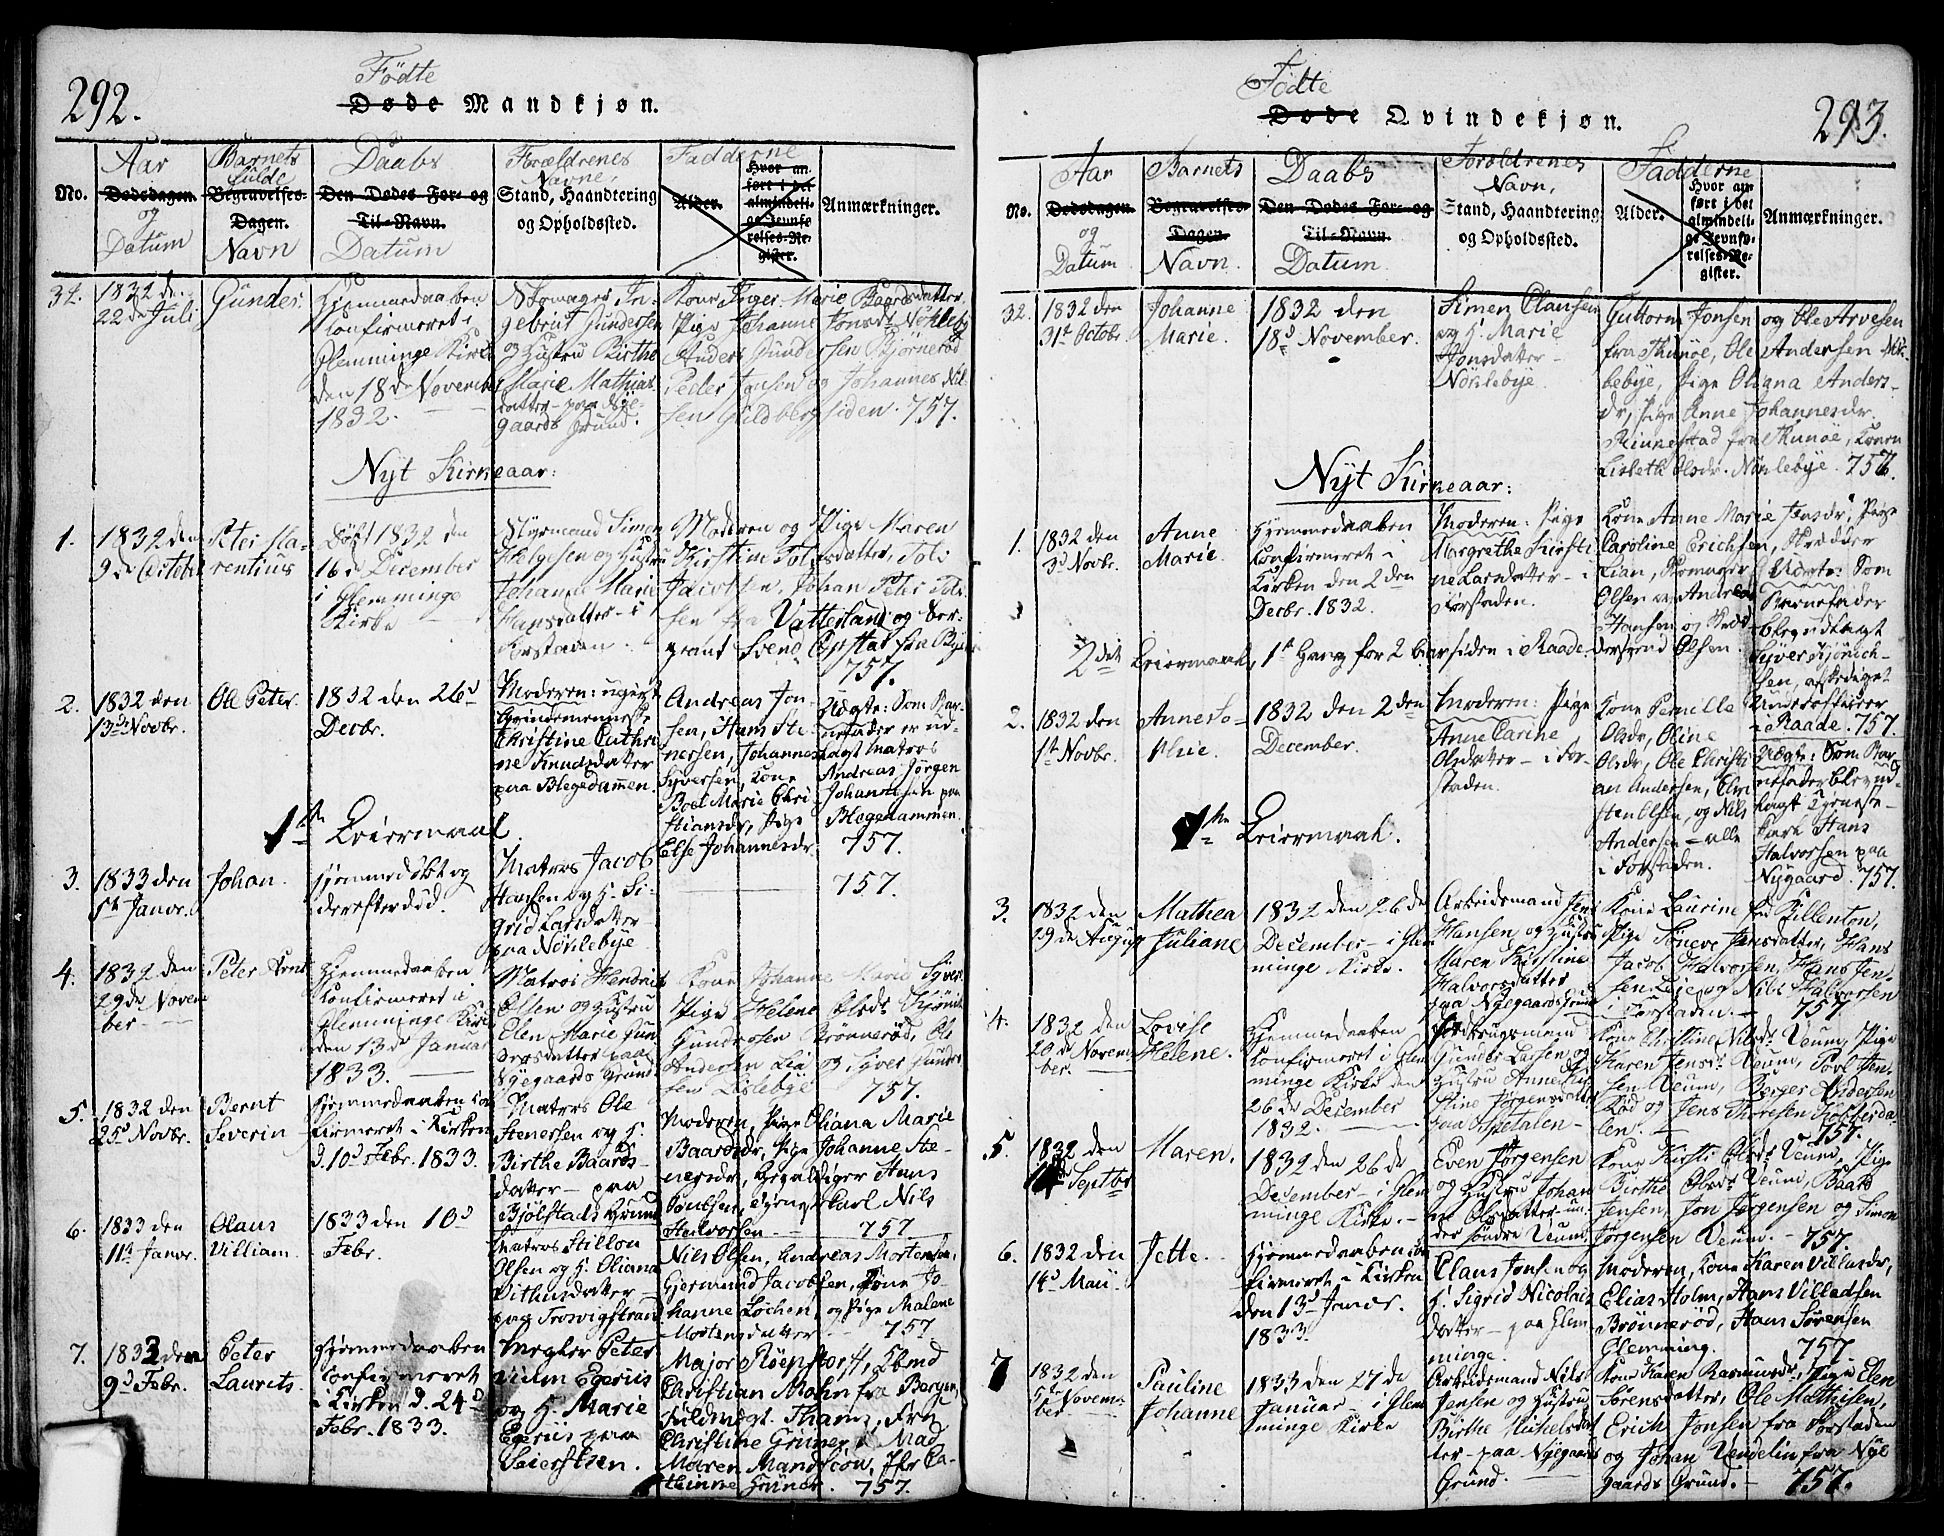 292.
Födte
Døde Mandkjøn.
No.
Aar
Dødsdagen.
og
Datum
Barnets
fulde
Begravelses-
Dagen.
Navn
Daabs
Den Dødes For- og
Til-Navn.
Datum
Forældrenes
Navne,
Stand, Haandtering
og Opholdssted.
Fadderne
Alder.
Hvor an-
ført i det
almindeli-
ge Jevnfø-
relses-Re-
gister.
Anmærkninger.
34.
1832 den
22de Juli
Gunder.
Hjemmedaaben
Confirmeret i
Glemminge Kirke
den 18de Novembr
1832.
Skomager In-
gebrit Gundersen
og Hustru Birthe
Marie Mathias
datter - paa Nye-
gaards Grund.
Kone Inger Marie Baardsdatter
Pige Johanne Jonsdr Nöklebye
Anders Gundersen Bjørnerød
Peder Jonsen og Johannes Nil-
sen Guldbergsiden. 757.
Nyt Kirkeaar:
1.
1832 den
9de October
Peter La-
rentius
Døbt 1832 den
16de December
i Glemminge
Kirke
Styrmand Simen
Helgesen og Hustru
Johanne Marie
Hansdatter - i
Forstaden.
Moderen og Pige Maren
Kirstine Tolsdatter, Tols
Jacobsen, Johan Peter Tols-
sen fra Vatterland og Ser-
geant Svend
757.
2.
1832 den
13de Novbr.
Ole Peter.
1832 den 26d
Decbr.
Moderen: ugivt
Qvindemenneske
Christine Cathri
ne Knudsdatter
paa Blegedammen.
Andreas Jon-
sen, Hans Ste-
nersen, Johannes
Syversen, Kone
Boel Marie Chri
stiansdr, Pige
Else Johannesdr.
Udgte: Som Bar-
nefader er ud-
lagt Matros
Andreas Jörgen
Johannesen paa
Blegedammen.
757.
1ste Leiermaal.
3.
1833 den
5te Janvr.
Johan.
Hjemmedøbt og
derefter død.
Matros Jacob
Hansen og H. Si-
grid Larsdatter
paa Nöklebye
757.
4.
1832 den
29de Novem
ber
Peter
Hjemmedaaben
Confirmeret i
Glemminge Kirke
den 13de Januar
1833.
Matros Hendrik
Olsen og Hustru
Elen Marie Gun
dersdatter paa
Nyegaards Grund
Kone Johanne Marie Syvers
Pige Helene Olsdr
Gundersen Brønnerød, Ole
Andersen Lia og Syver Gunder
sen Lislebye 757.
5.
1832 den
25d Novbr.
Bernt
Severin
Hjemmedaaben con
firmeret i Kirken
d. 10d Febr. 1833.
Matros Ole
Stenersen og H.
Birthe Baards-
datter - paa
Bjølstads Grund
Moderen, Pige Oliana Marie
Baardsdr, Pige Johanne Ste-
nersdr,
Poulsen, Nils
Halvorsen 757
6.
1833 den
11te Janvr.
Olaus
Villiam.
1833 den 10d
Febr.
Matros Stillou
Olsen og H. Oliana
Vithusdatter
paa Trosvigstrand
Nils Olsen, Andreas Mortensen,
Gjermund Jacobsen, Kone Jo-
hanne Lochen, og Pige Malene
Mortensdatter 757
7.
1833 den
9d Febr.
Peter
Laurits.
Hjemmedaaben
confirmeret
i Kirken d. 24d
Febr. 1833.
Megler Peter
Vilm Egerius
og H. Marie
Egerius paa
Seiersteen.
Major Röepstorff,
Christian Mohn fra Bergen,
Fuldmegt. Thams, Frk
Christine Grüner, Mad
Maren Mandscou, Ca-
thinne Grüner. 757.
293.
Födte
Døde Qvindekjøn.
No.
Aar
Dødsdagen.
og
Datum
Barnets
Begravelses-
Dagen.
Navn.
Daabs
Den Dødes For- og
Til-Navn.
Datum.
Forældrenes
Navn,
Stand, Haandtering
og Opholdssted.
Fadderne
Alder.
Hvor an-
ført i det
almindeli-
ge Jevnfø-
relses-Re-
gister.
Anmærkninger.
32.
1832 den
31te Octobr
Johanne
Marie.
1832 den
18d November.
Simen Olausen
og H. Marie
Jonsdatter -
Nöklebye.
Guttorm Jonsen og Ole Arvesen
fra Thunøe, Ole Andersen Nök-
lebye, Pige Oliana Anders-
dr, Pige Anne Johannesdr.
Kinnestad fra Thunøe, Konen
Lisbeth Olsdr. Nöklebye. 757.
Nyt Kirkeaar:
1.
1832 den
3d Novbr.
Anne
Marie.
Hjemmedaaben
Confirmeret i
Kirken den 2den
Decbr. 1832.
Moderen: Pige
Margrethe Kirsti
ne Larsdatter - i
Forstaden.
Kone Anne Marie Jensdr, Pige
Caroline Erichsen, Skredder
Lian, Skomager
Olsen
Hansen og Ped-
dersend Olsen.
Udgte: Som
Barnefader
blev udlagt
Syver Kjönich-
sen, afskediget
Underofficier
i Raade. 757.
2det Leiermaal, 1te Gang for 2 Aar siden i Raade.
2.
1832 den
1te Novbr.
Anne So-
phie.
1832 den 2den
December.
Moderen: Pige
Anne Carine
Olsdatter - i For-
staden.
Kone Pernille
Olsdr, Oline
Olsdr, Ole Christi
an Andersen, Chri
sten Olsen, og Nils
Andersen - alle
i Forstaden.
Udgte: Som Bar
nefader blev ud-
lagt Tjeneste-
Karl Hans
Halvorsen paa
Nygaard. 757.
1ste Leiermaal.
3.
1832 den
29de August
Mathea
Juliane
1832 den 26de
December - i Glem
minge Kirke.
Arbeidsmand Jens
Hansen og Hustru
Maren Kirstine
Halvorsdatter
paa Nyegaards Grund
Kone Laurine Killenton,
Pige Toneve Jensdatter, Hans
Jacob Halvorsen, Hans Jen-
sen Leje og Nils Halvorsen
i Forstaden. - 757.
4.
1832 den
20de Novem
ber.
Lovise
Helene.
Hjemmedaaben
Confirmeret i Glem
minge Kirke den
26de December
1832.
Jordbrugsmand
Gunder Larsen, og
Hustru Anne Chri
stine Jørgensdatter
paa Spetalen -
Kone Christine Nilsdr Veum, Pige
Karen Jensdr Veum, Povl Jen-
sen Veum, Berger Andersen
Rød og Jens Thoresen
len. 757.
5.
1832 den
Septbr
Maren.
1832 den 26de
December - i Glem
minge Kirke. -
Even Jørgensen
og Hustru Johan
ne Olsdatter - un-
der søndre Veum.
Kone Kirsti Olsdr Veum, Pige
Birthe Olsdr Veum, Baard
Jensen, Jon Jørgensen og Simon
Jørgensen Veum. - 757.
6.
1832 den
14d Maii
Jette.
Hjemmedaaben con
firmeret i Kirken
den 13d Janvr.
1833.
Claus Jonsen og
H. Sigrid Nicolais
datter - paa Glem
minge.
Moderen, Kone Karen Villasdr,
Elias Holm, Hans Villadsen
Brönnerød, Hans Sørensen
Glemming. 757
7
1832 den
5te Novem-
ber
Pauline
Johanne
1833 den 27de
Januar - i Glem
minge Kirke
Arbeidsmand Nils
Jensen og Hustru
Birthe Michelsdat
ter - paa Nyegaards
Grund.
Kone Karen Rasmusdr, Pige Elen
Sørensdatter, Ole Mathisen,
Erich Jonsen fra Forstaden
og Johan Vendelin fra Nye
gaards Grund. - 757.